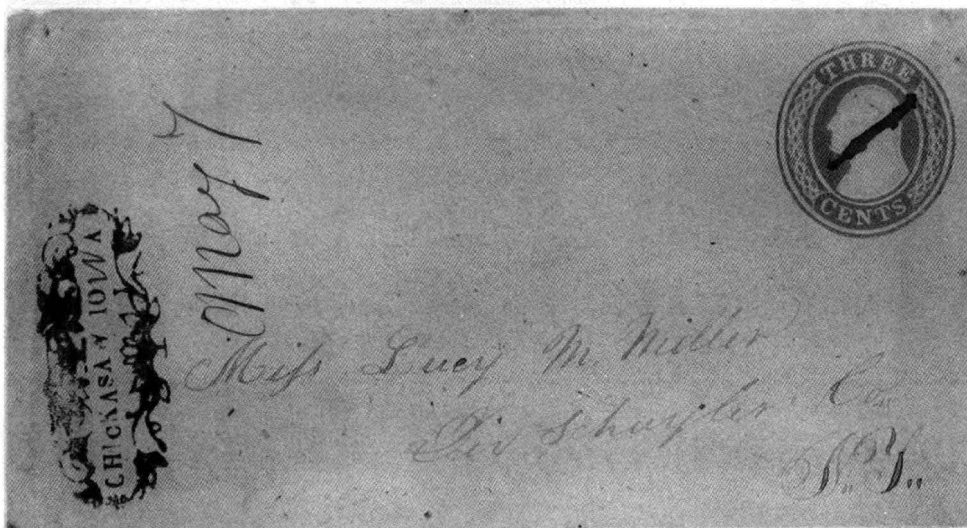 THREE
CENTS
May 7
CHICKASAW IOWA
Miss Lucy M. Miller
Schuyler Co.
N.Y.